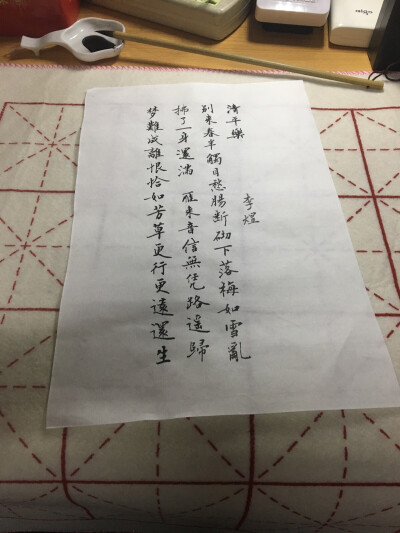 清平樂
李煜
別来春半觸目愁腸斷砌下落梅如雪亂
拂了一身還滿 雁来音信無凭路遥歸
梦難成離恨恰如芳草更行更遠還生